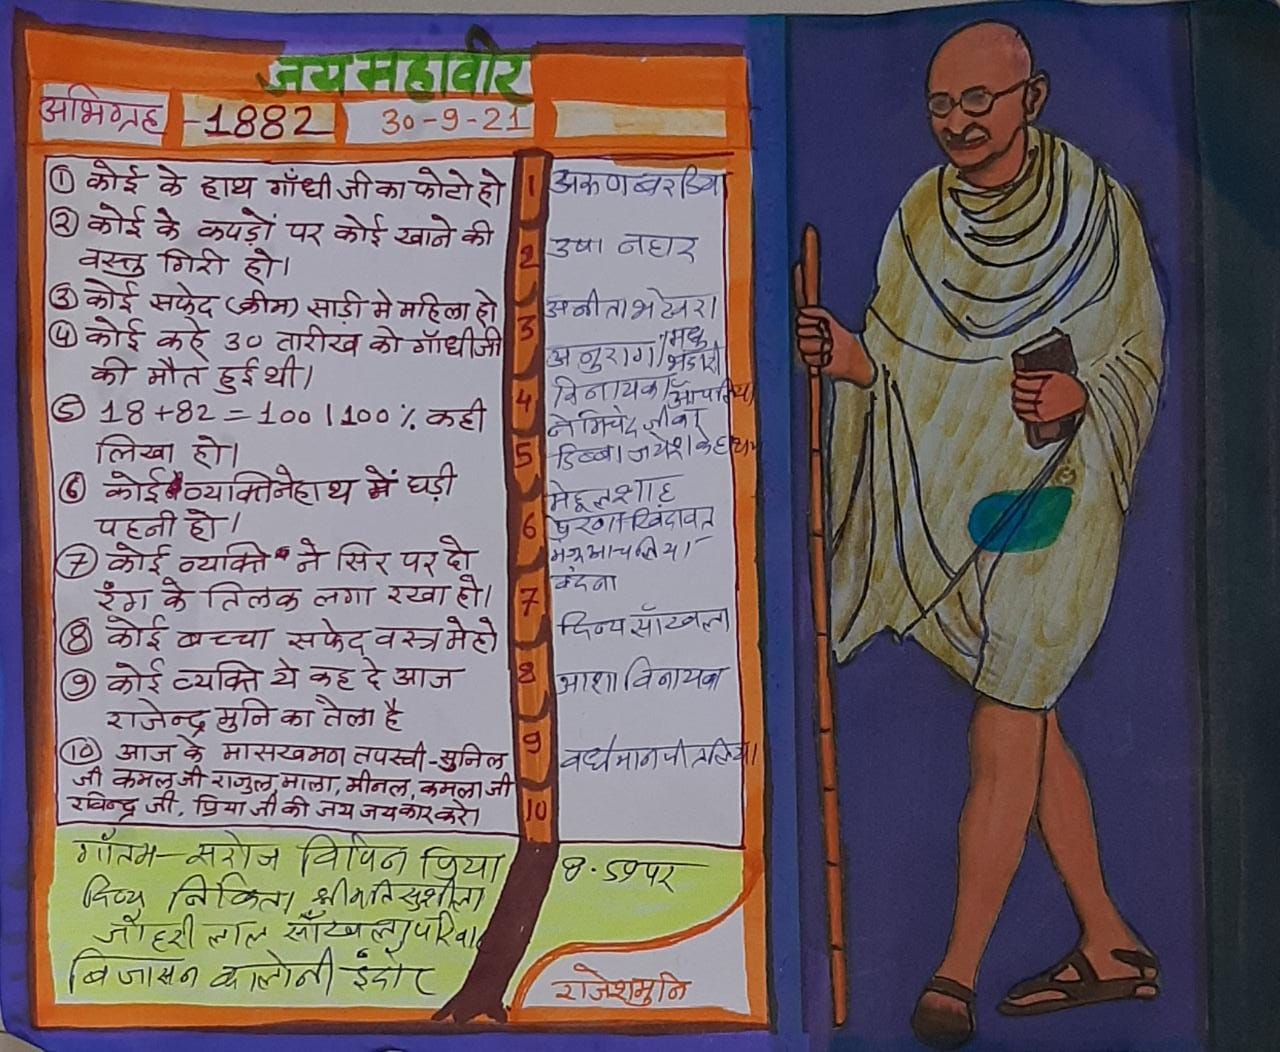 जय महावीर
अभिग्रह -1882 30-9-21
① कोई के हाथ गाँधी जी का फोटो हो
② कोई के कपड़ों पर कोई खाने की
वस्तु गिरी हो।
③ कोई सफेद (क्रीम) साड़ी मे महिला हो
④ कोई कहे 30 तारीख को गाँधीजी
की मौत हुई थी।
⑤ 18+82=100 | 100% कही
लिखा हो।
⑥ कोई व्यक्ति ने हाथ में घड़ी
पहनी हो।
⑦ कोई व्यक्ति ने सिर पर दो
रंग के तिलक लगा रखा हो।
⑧ कोई बच्चा सफेद वस्त्र मे हो
⑨ कोई व्यक्ति ये कह दे आज
राजेन्द्र मुनि का तेला है
⑩ आज के मासखमण तपस्वी-सुनिल
जी कमल जी राजुल, माला, मीनल, कमला जी
रविन्द्र जी, प्रिया जी की जय जयकार करे।
1 अरुण बरडिया
2 उषा नहार
3 अनीता भटेवरा
अनुराग / मधु
भंडारी
4 विनायका
नेमिचंद जी का
5 डिब्बा जयेश के हाथ
मेहूल शाह
6
वंदना
7 दिव्य साँखला
8 आशा विनायका
9 वर्धमान पीतलिया
10
गौतम - सरोज विपिन प्रिया
दिव्य निकिता श्रीमति सुशीला
जौहरी लाल साँखला परिवार
बिजासन कालोनी इंदौर
8.59 पर
राजेशमुनि